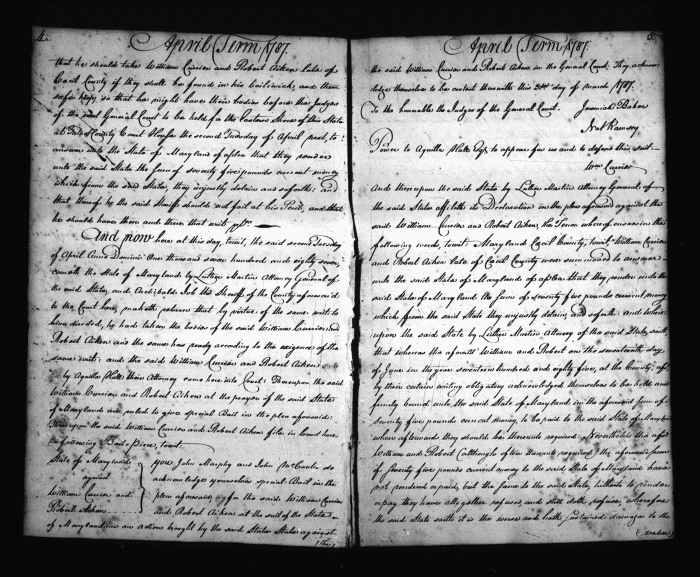 4.
April Term 1787.
that he should take William Currier and Robert Aiken late of
Cecil County if they shall be found in his bailiwick, and them
safe keep, so that he might have their bodies before the Judges
of the said General Court to be held for the Eastern Shore of this State
at Talbot County Court House the second Tuesday of April next, to
answer unto the State of Maryland of a plea that they render
unto the said State the sum of seventy five pounds current money
which from the said State, they unjustly detain and so forth: and
that thereof he the said Sheriff should not fail at his Peril, and that
he should have then and there that writ
And now here at this day, towit, the said second Tuesday
of April Anno Domini One thousand seven hundred and eighty seven
cometh the State of Maryland by Luther Martin Attorney General of
the said State, and Archibald Job the Sheriff of the County aforesaid
to the Court here, maketh return that by virtue of the same writ to
him directed, he had taken the bodies of the said William Currier and
Robert Aiken and the same has ready according to the exigence of the
same writ: and the said William Currier and Robert Aiken
by Aquilla Hall their Attorney come here into Court: Whereupon the said
William Currier and Robert Aiken at the prayer of the said State
of Maryland are ruled to give special Bail in the plea aforesaid:
Whereupon the said William Currier and Robert Aiken files in Court here
the following Bail Piece, towit.
State of Maryland
against
William Currier and
Robert Aiken
You John Murphy and John McCauley do
acknowledge yourselves special Bail in the
plea aforesaid for the said William Currier
and Robert Aiken at the suit of the State
of Maryland in an action brought by the said State against
(the)
5.
April Term 1787.
the said William Currier and Robert Aiken in the General Court. They acknow
ledge themselves to be content therewith this 31st day of March 1787.
To the honorable the Judges of the General Court. Jeremiah Baker
Nat Ramsey
Power to Aquilla Hall Esqr. to appear for us and to defend this suit.
Wm Currier
And thereupon the said State by Luther Martin Attorney General of
the said State, files its Declaration in the plea aforesaid against the
said William Currier and Robert Aiken, the Tenor whereof ensues in the
following words, towit. Maryland Cecil County, towit, William Currier
and Robert Aiken late of Cecil County were summoned to answer
unto the said State of Maryland of a plea that they render unto the
said State of Maryland the sum of seventy five pounds current money
which from the said State they unjustly detain and so forth. and where
upon the said State by Luther Martin Attorney of the said State, saith,
that whereas the aforesd William and Robert on the seventeenth day
of June in the year seventeen hundred and eighty five, at the County, afd
by their certain writing obligatory acknowledged themselves to be held and
firmly bound unto the said State of Maryland in the aforesaid sum of
seventy five pounds current money, to be paid to the said State of Maryland
when afterwards they should be thereunto required. Nevertheless the afsd
William and Robert (although often thereunto required) the aforesaid sum
of seventy five pounds current money to the said State of Maryland have
not rendered or paid, but the same to the said State, hitherto to render
or pay they have altogether refused, and still doth refuse, wherefore
the said State saith it is the worse and hath sustained damage to the
(value)